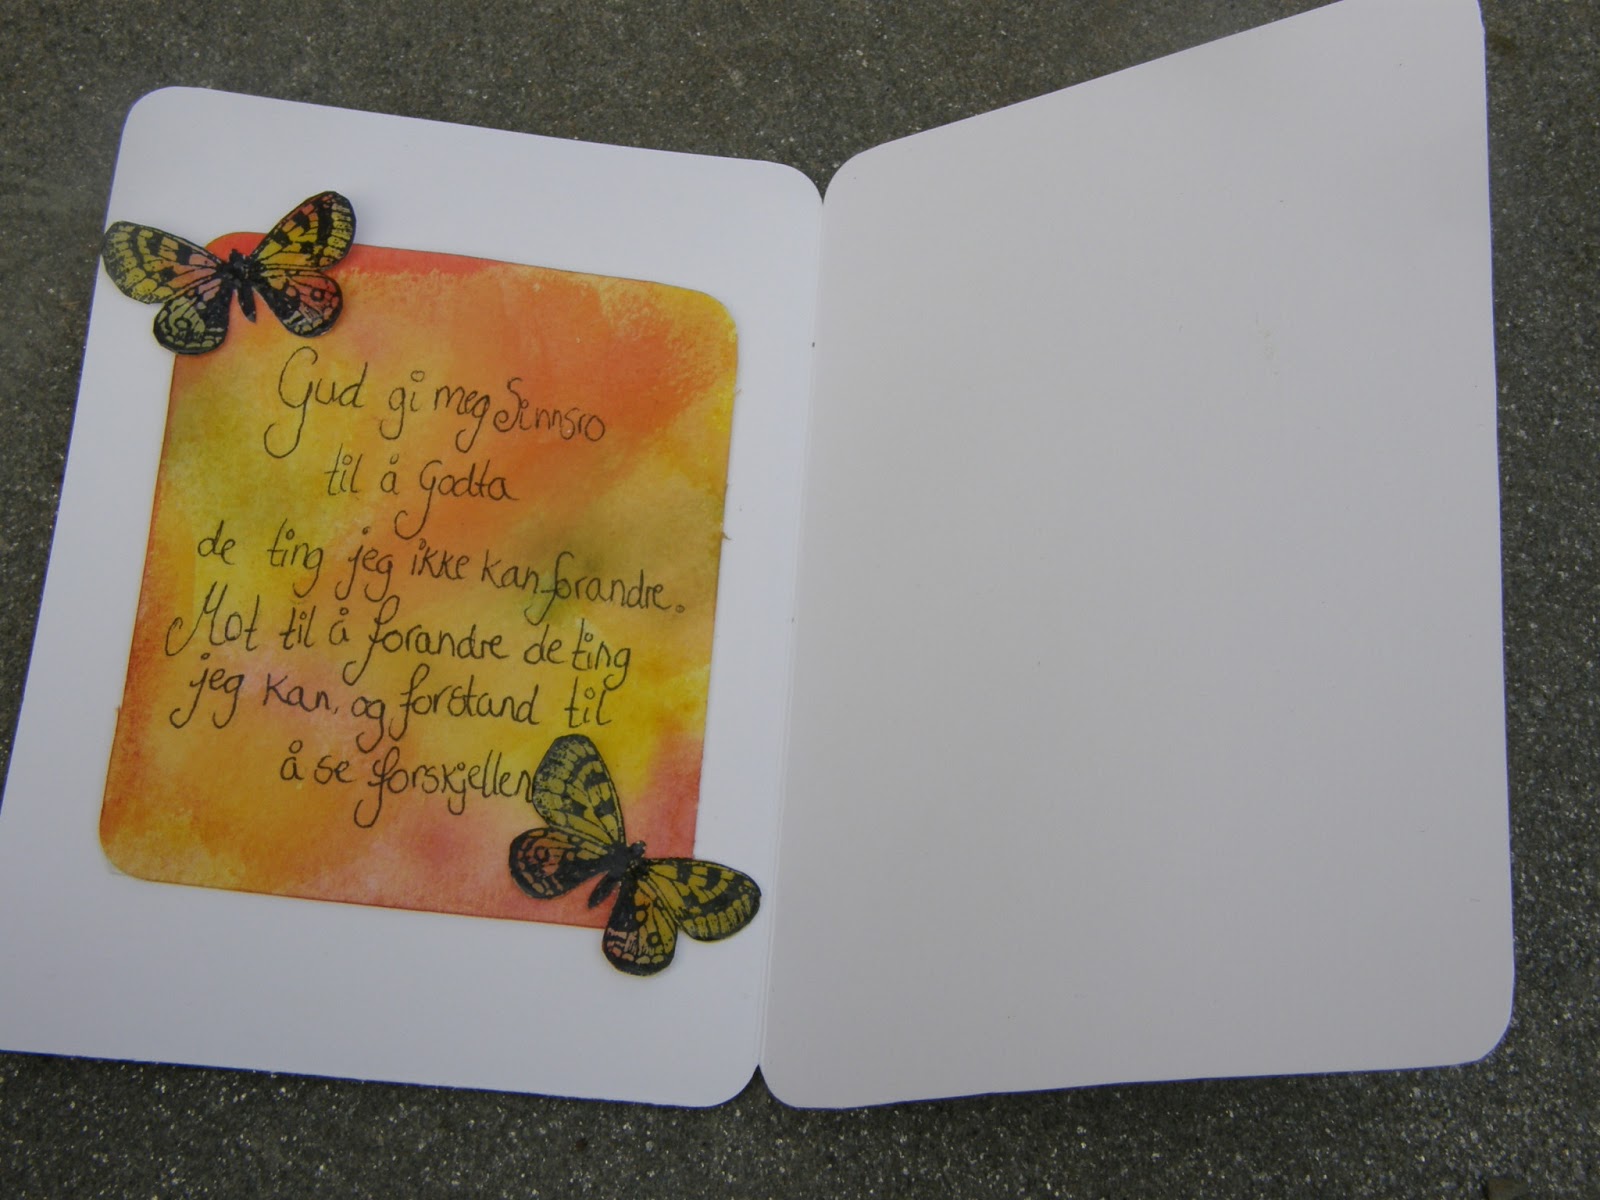 Gud gi meg Sinnsro
til å Godta
de ting jeg ikke kan forandre.
Mot til å forandre de ting
jeg kan, og forstand til
å se forskjellen